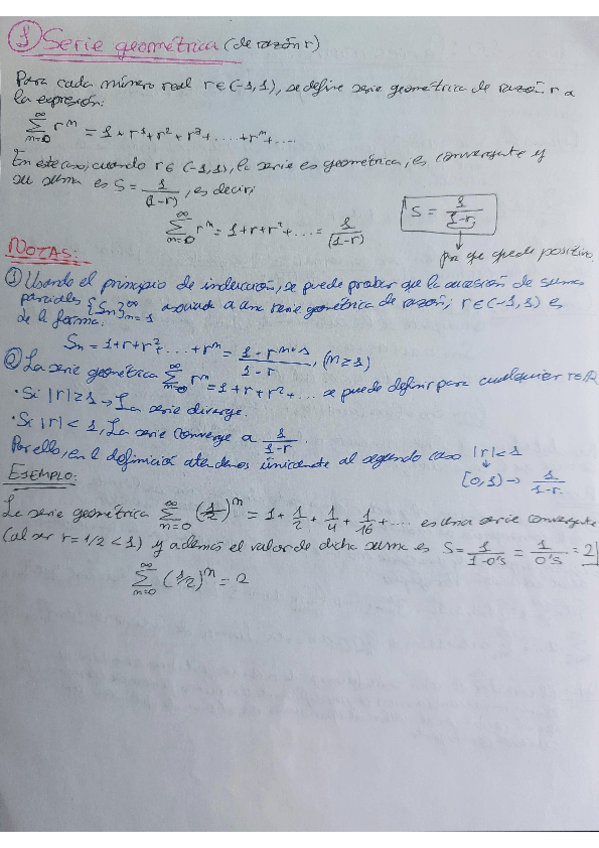 1 Serie geométrica (de razón r)
Para cada número real r∈(-1,1), se define serie geométrica de razón r a
la expresión:
∞∑n=0 rⁿ = 1+r¹+r²+r³+....+rⁿ+....
En este caso, cuando r∈(-1,1), la serie es geométrica, es convergente y
su suma es S = 1/(1-r), es decir;
∞∑n=0 rⁿ = 1+r+r²+... = 1/(1-r)
S = 1/(1-r)
pa que quede positivo.
NOTAS:
① Usando el principio de inducción, se puede probar que la sucesión de sumas
parciales {Sn}∞n=1 asociada a una serie geométrica de razón; r∈(-1,1) es
de la forma:
Sn = 1+r+r²+...+rⁿ = (1-rⁿ⁺¹)/(1-r), (n≥1)
② La serie geométrica ∞∑n=0 rⁿ = 1+r+r²+... se puede definir para cualquier r∈ℝ
· Si |r|≥1 → La serie diverge.
· Si |r|<1, La serie converge a 1/(1-r).
Por ello, en la definición atendemos únicamente al segundo caso |r|<1
[0,1) → 1/(1-r)
EJEMPLO:
La serie geométrica ∞∑n=0 (1/2)ⁿ = 1+1/2+1/4+1/16+... es una serie convergente
(al ser r=1/2<1) y además el valor de dicha suma es S = 1/(1-0's) = 1/0's = 2
∞∑n=0 (1/2)ⁿ = 2